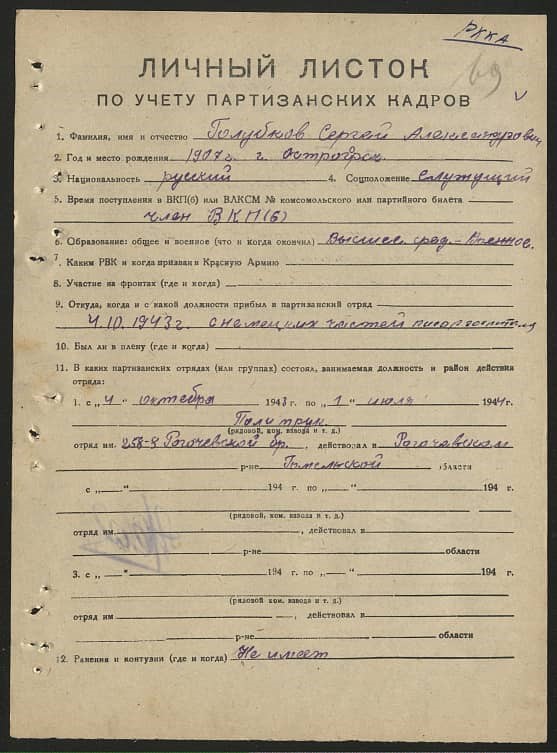 РККА
69
ЛИЧНЫЙ ЛИСТОК
ПО УЧЕТУ ПАРТИЗАНСКИХ КАДРОВ
1. Фамилия, имя и отчество Голубков Сергей Александрович
2. Год и место рождения 1907 г. г. Острогожск
3. Национальность русский 4. Соцположение служущий
5. Время поступления в ВКП(б) или ВЛКСМ № комсомольского или партийного билета
член ВКП(б)
6. Образование: общее и военное (что и когда окончил) Высшее, сред-Военное.
7. Каким РВК и когда призван в Красную Армию
8. Участие на фронтах (где и когда)
9. Откуда, когда и с какой должности прибыл в партизанский отряд
4.10.1943 г. с немецких частей
10. Был ли в плену (где и когда)
11. В каких партизанских отрядах (или группах) состоял, занимаемая должность и район действия
отряда:
1. с „4" октября 1943 г. по „1" июля 1944 г.
Политрук
(рядовой, ком. взвода и т. д.)
отряд им. 258-й Рогочевской бр., действовал в Рогочевском
р-не Гомельской области
с „ " 194 г. по „ " 194 г.
(рядовой, ком. взвода и т. д.)
отряд им. , действовал в
р-не области
3. с „ " 194 г. по „ " 194 г.
(рядовой, ком. взвода и т. д.)
отряд им. , действовал в
р-не области
12. Ранения и контузии (где и когда) Не имеет